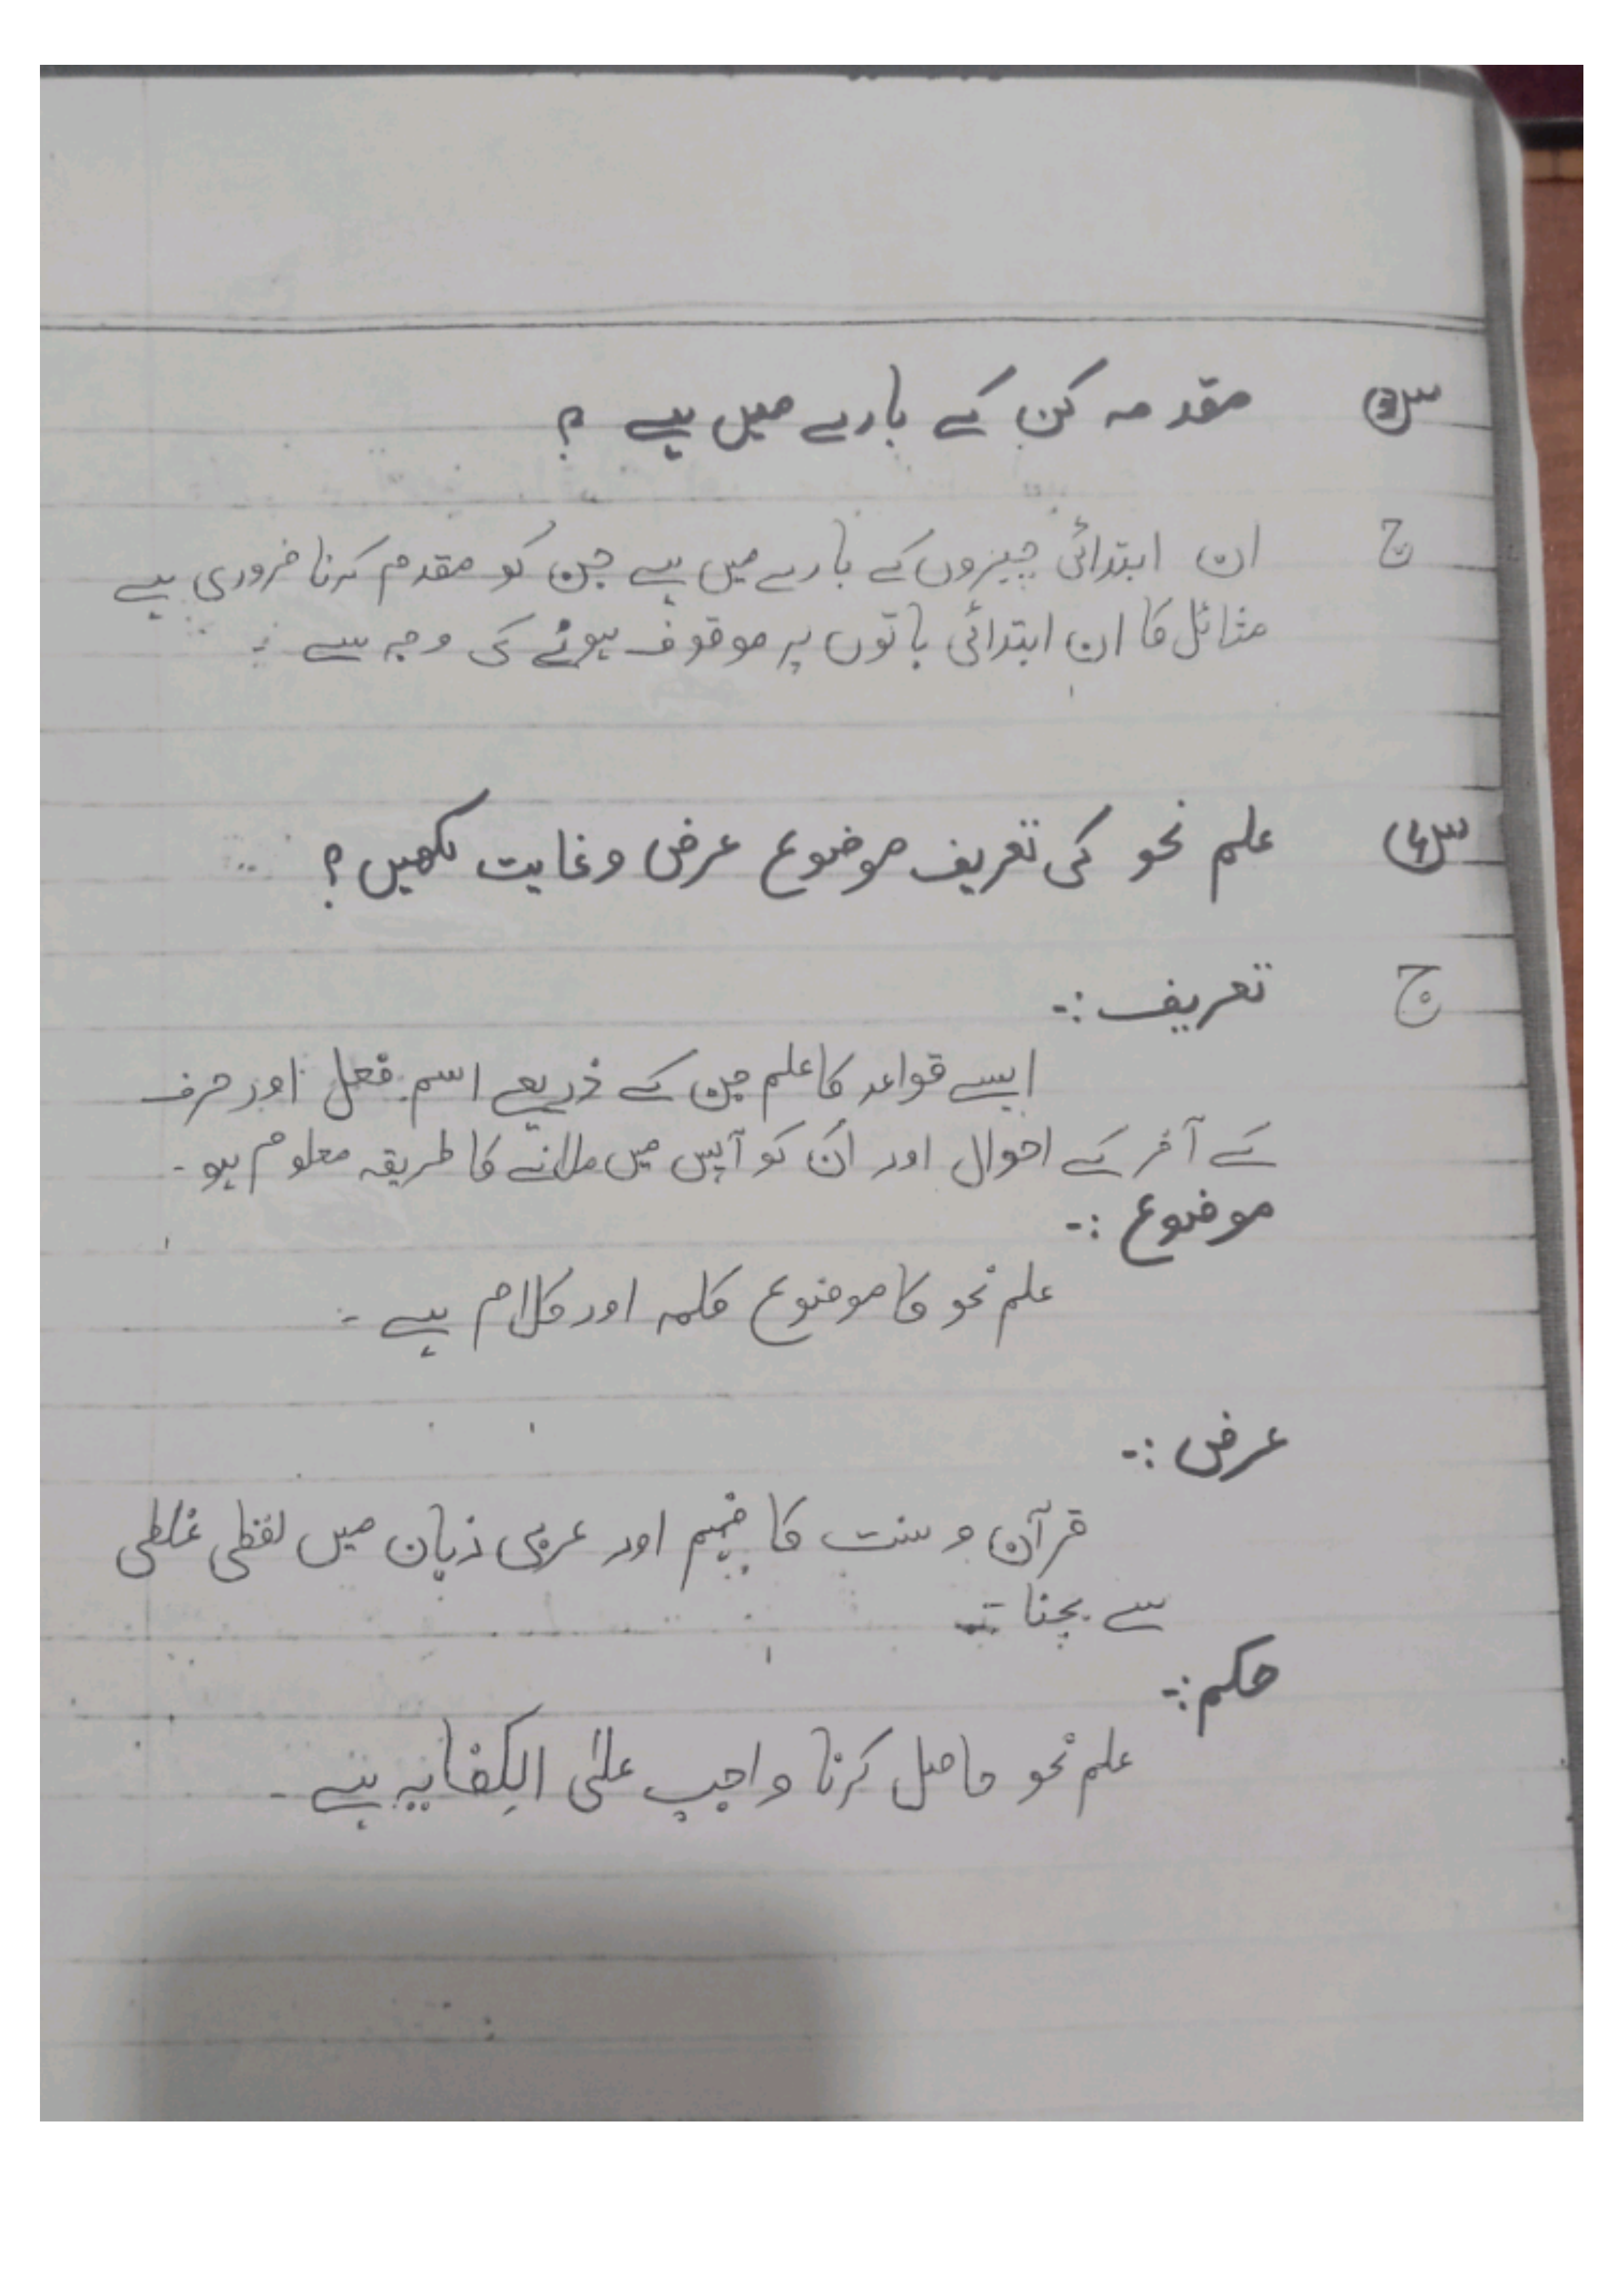 س③ مقدمہ کن کے بارے میں ہے ؟
ج ان ابتدائی چیزوں کے بارے میں ہے جن کو مقدم کرنا ضروری ہے
مثائل کا ان ابتدائی باتوں پر موقوف ہونے کی وجہ سے ۔
س④ علم نحو کی تعریف موضوع عرض وغایت لکھیں ؟
ج تعریف :-
ایسے قواعد کا علم جن کے ذریعے اسم فعل اور حرف
کے آخر کے احوال اور اُن کو آپس میں ملانے کا طریقہ معلوم ہو -
موضوع :-
علم نحو کا موضوع کلمہ اور کلام ہے -
عرض :-
قرآن و سنت کا فہم اور عربی زبان میں لفظی غلطی
سے بچنا -
حکم :-
علم نحو حاصل کرنا واجب علیٰ الکِفایہ ہے -